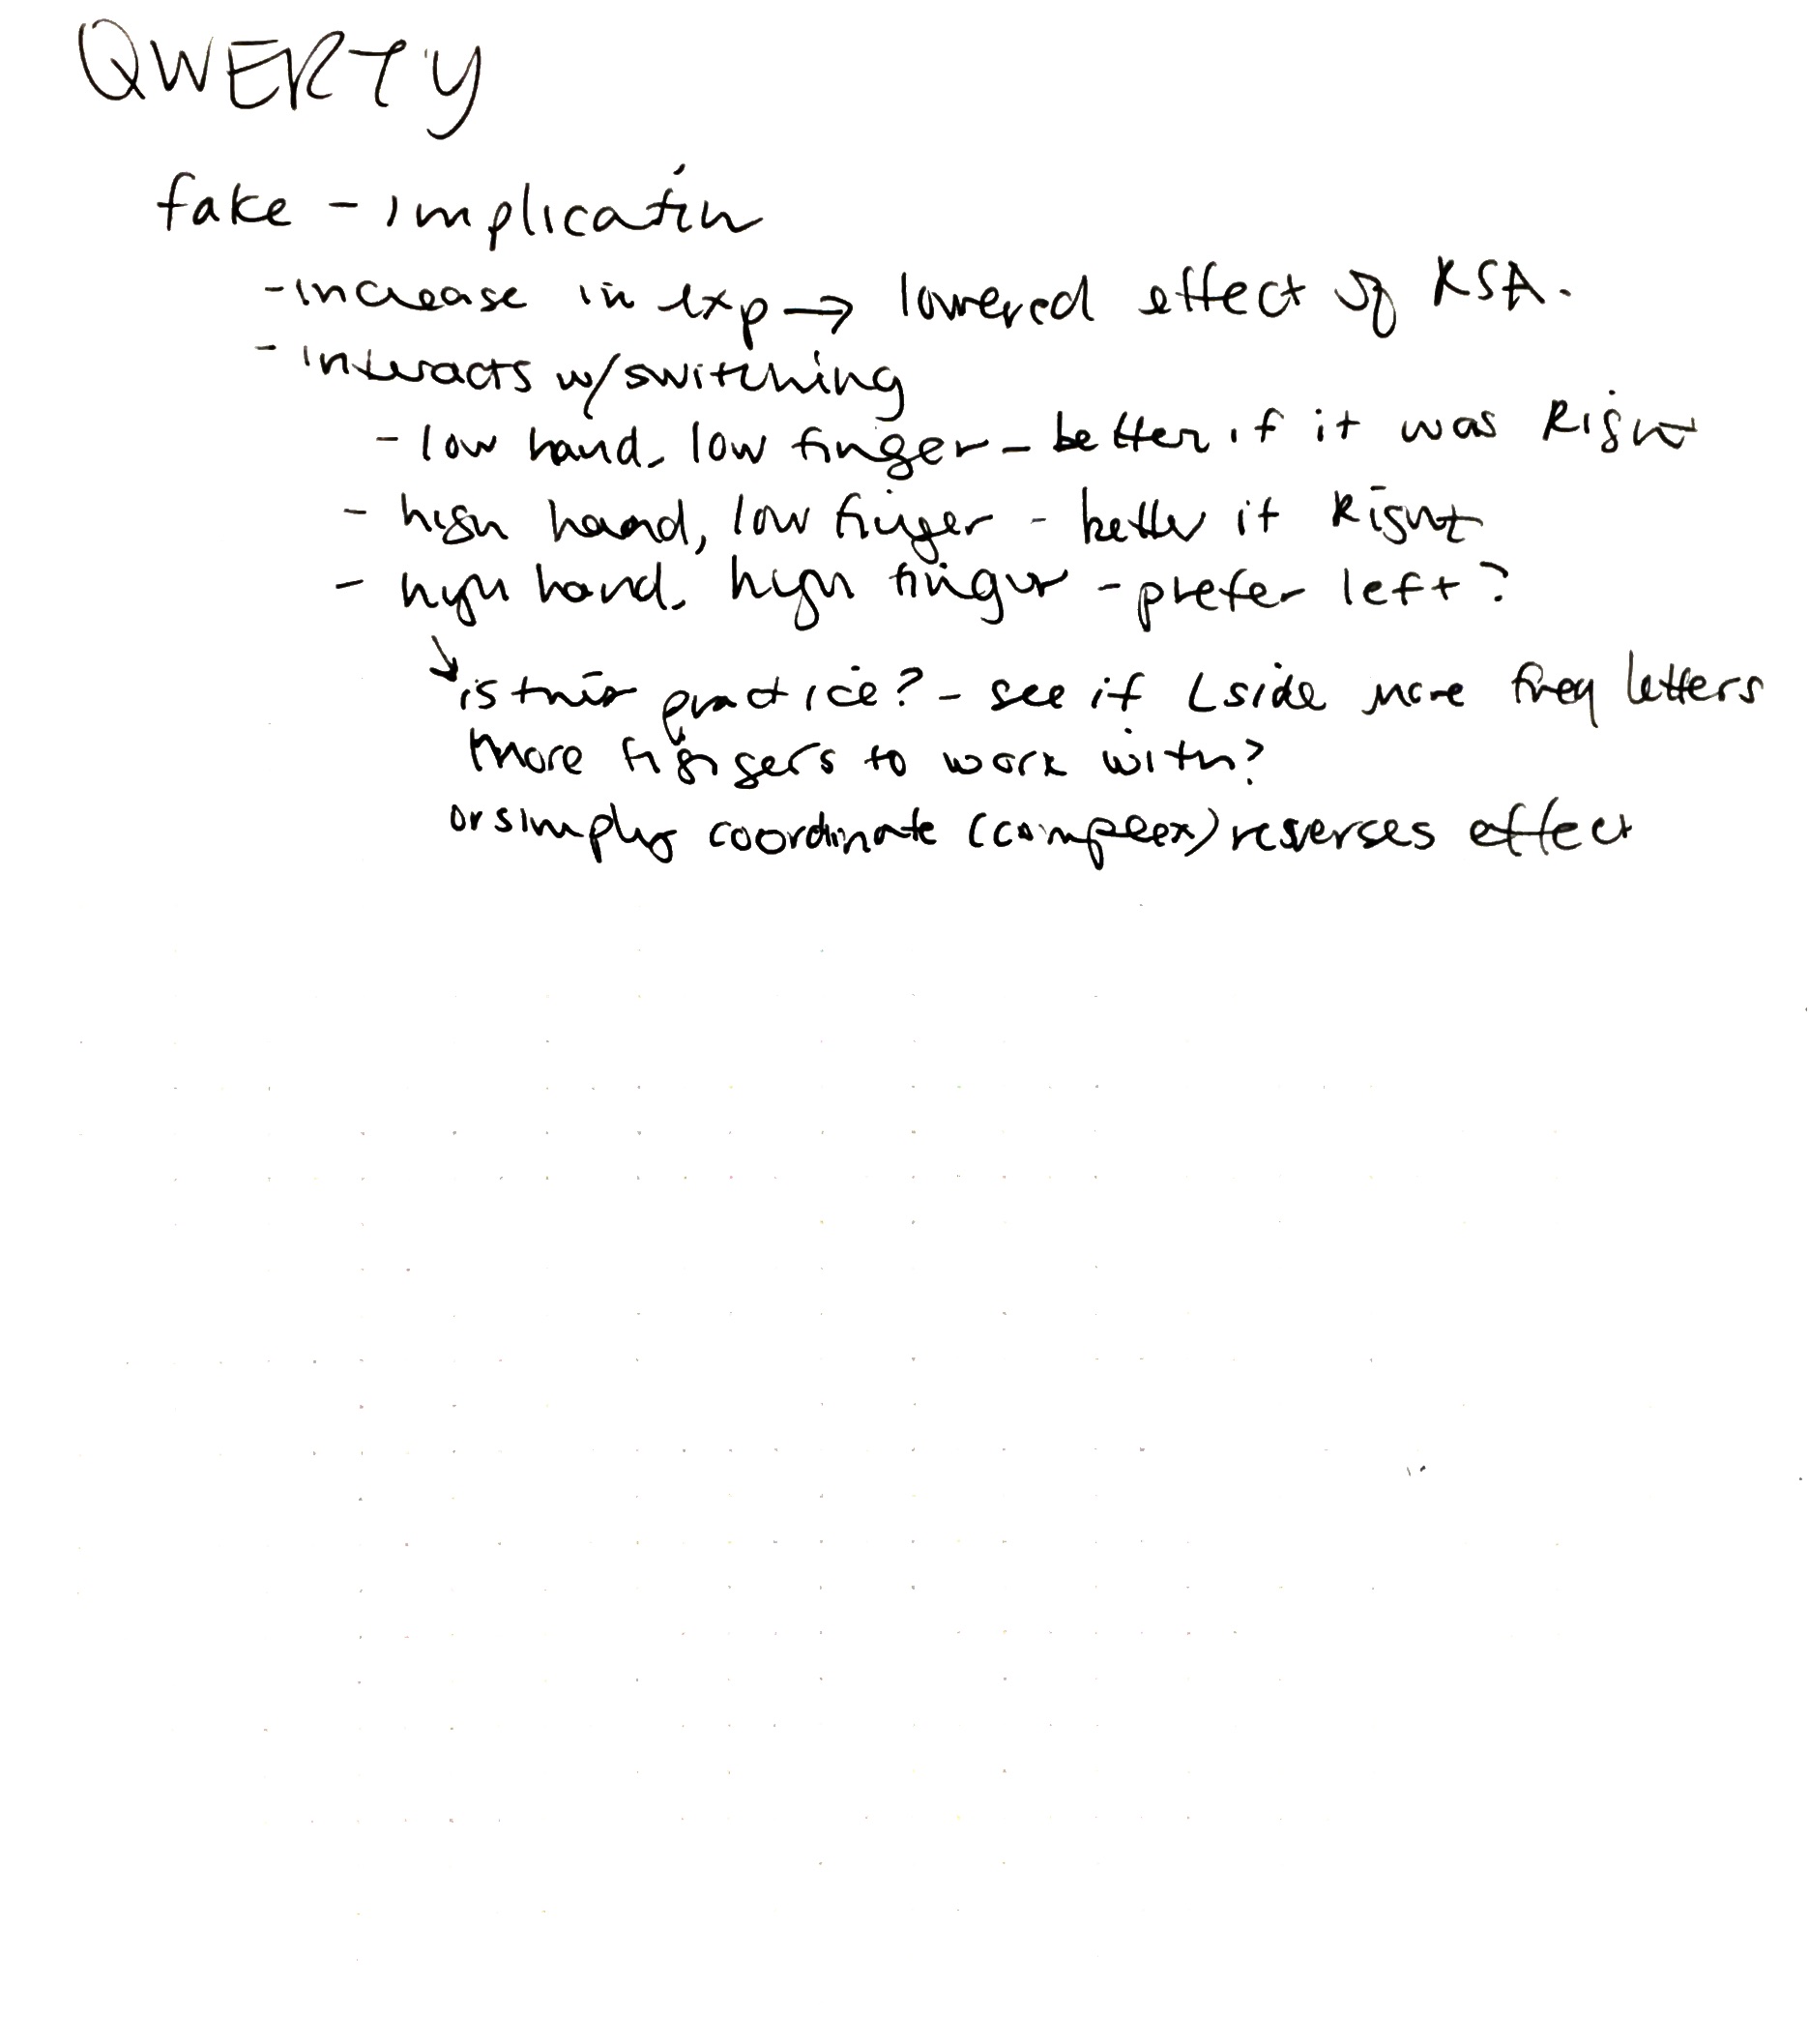 QWERTY
fake - implication
- increase in exp → lowered effect of RSA.
- interacts w/ switching
- low hand, low finger - better if it was Right
- high hand, low finger - better if Right
- high hand, high finger - prefer left?
↘ is this practice? - see if L side more freq letters
more fingers to work with?
or simply coordinate (complex) reverses effect